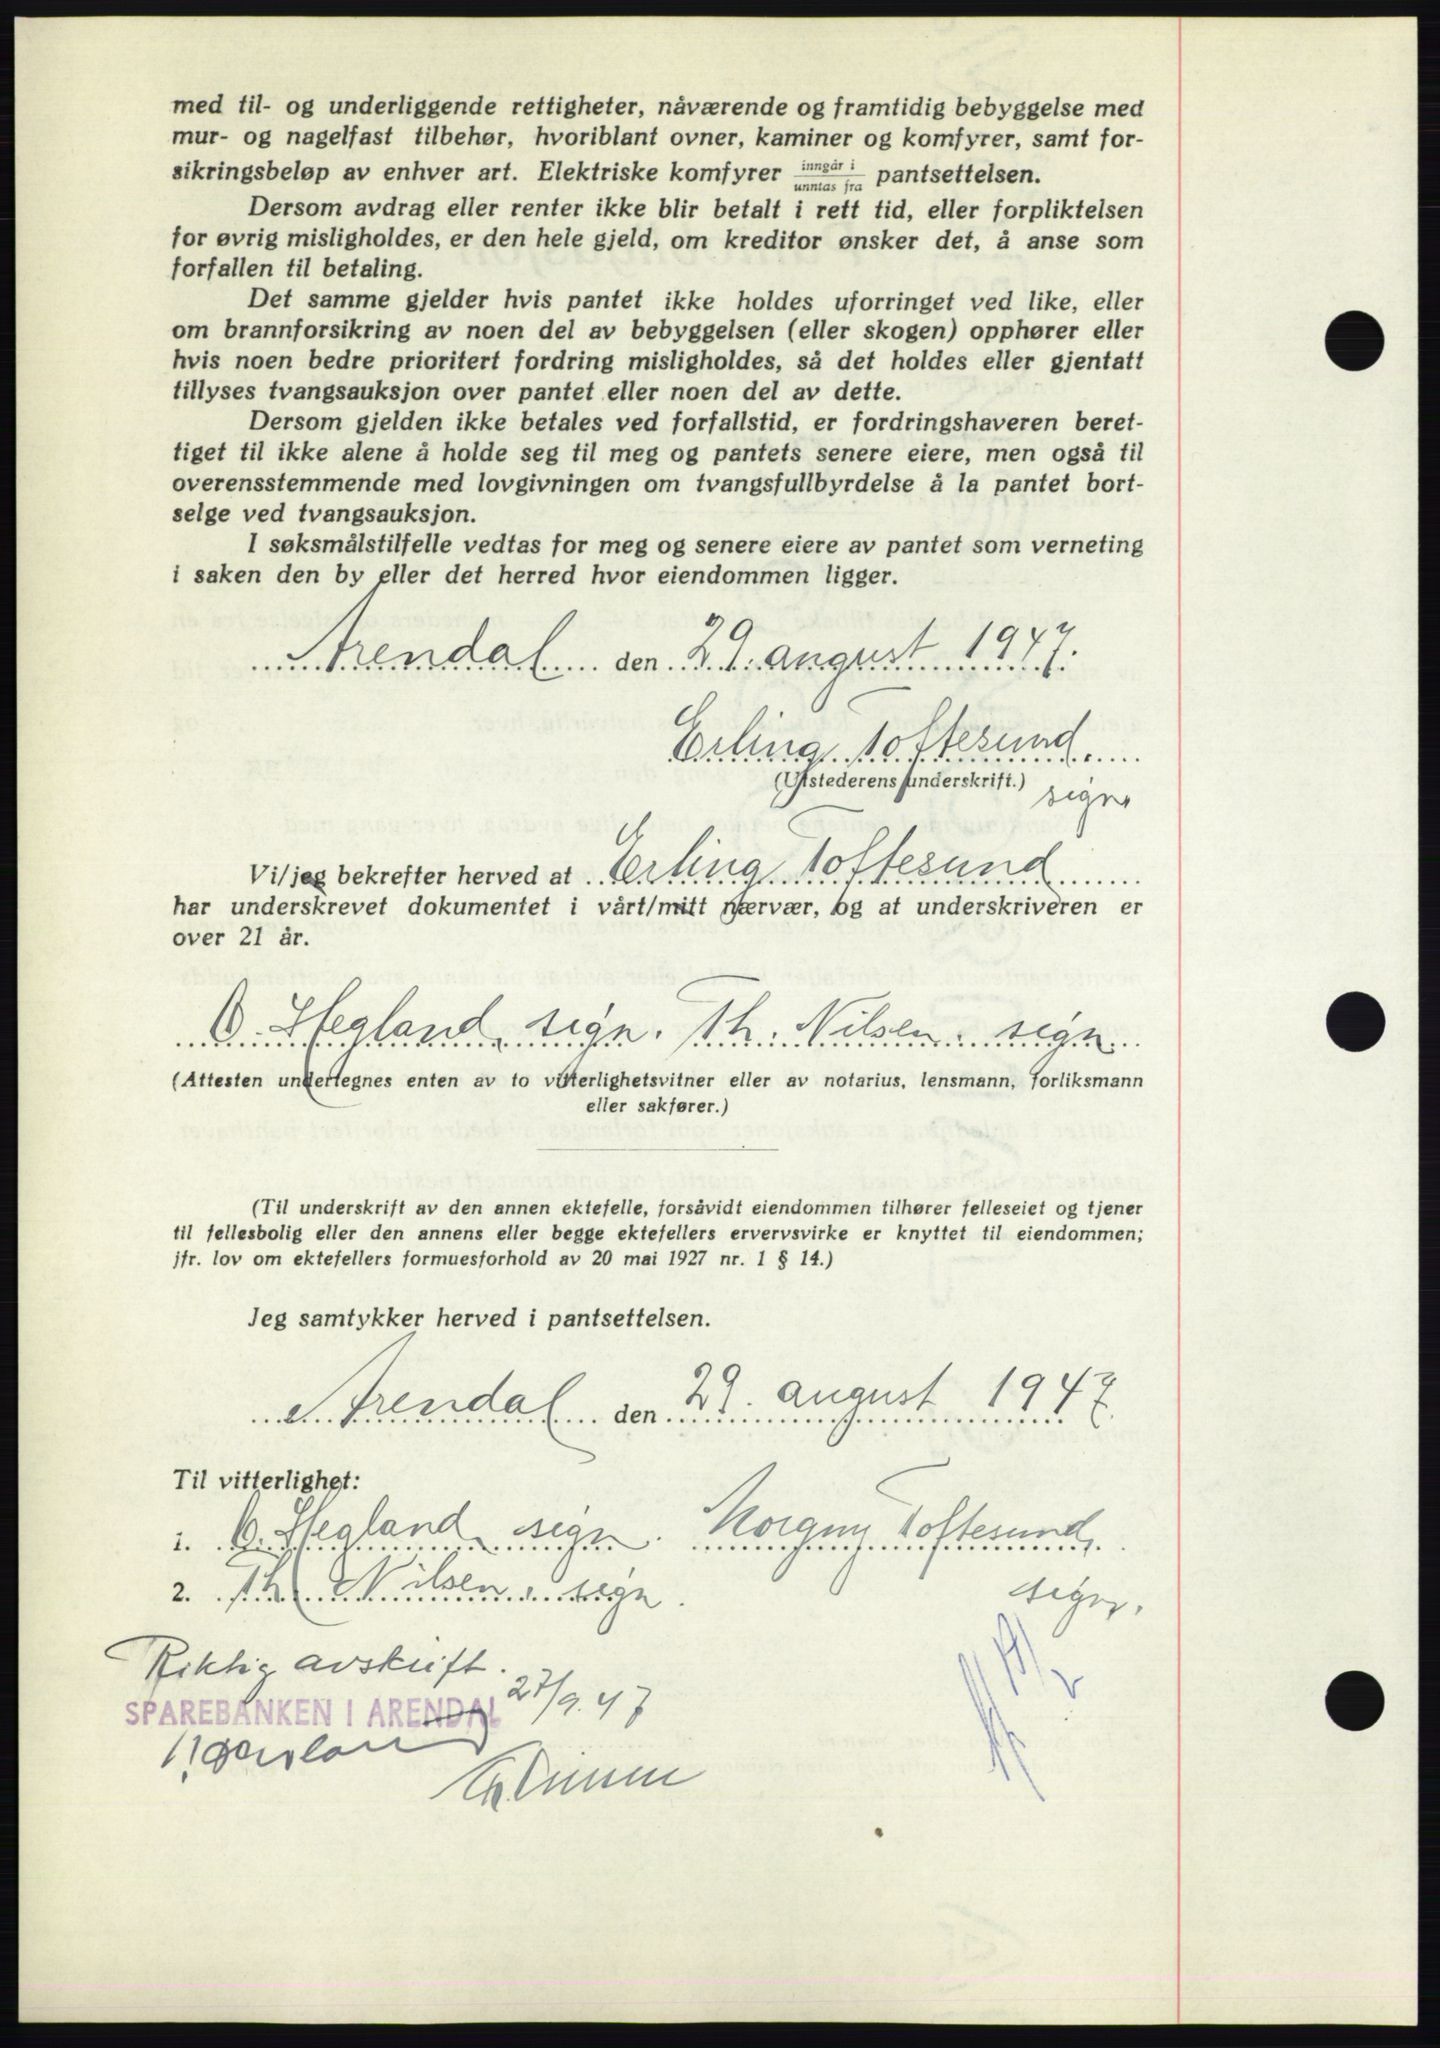 med til- og underliggende rettigheter, nåværende og framtidig bebyggelse med
mur- og nagelfast tilbehør, hvoriblant ovner, kaminer og komfyrer, samt for-
sikringsbeløp av enhver art. Elektriske komfyrer inngår i / unntas fra pantsettelsen.
Dersom avdrag eller renter ikke blir betalt i rett tid, eller forpliktelsen
for øvrig misligholdes, er den hele gjeld, om kreditor ønsker det, å anse som
forfallen til betaling.
Det samme gjelder hvis pantet ikke holdes uforringet ved like, eller
om brannforsikring av noen del av bebyggelsen (eller skogen) opphører eller
hvis noen bedre prioritert fordring misligholdes, så det holdes eller gjentatt
tillyses tvangsauksjon over pantet eller noen del av dette.
Dersom gjelden ikke betales ved forfallstid, er fordringshaveren beret-
tiget til ikke alene å holde seg til meg og pantets senere eiere, men også til
overensstemmende med lovgivningen om tvangsfullbyrdelse å la pantet bort-
selge ved tvangsauksjon.
I søksmålstilfelle vedtas for meg og senere eiere av pantet som verneting
i saken den by eller det herred hvor eiendommen ligger.
Arendal den 29. august 1947.
Erling Toftesund.
(Utstederens underskrift.)
sign.
Vi/jeg bekrefter herved at Erling Toftesund
har underskrevet dokumentet i vårt/mitt nærvær, og at underskriveren er
over 21 år.
O. Hegland sign. Th. Nilsen. sign.
(Attesten undertegnes enten av to vitterlighetsvitner eller av notarius, lensmann, forliksmann
eller sakfører.)
(Til underskrift av den annen ektefelle, forsåvidt eiendommen tilhører felleseiet og tjener
til fellesbolig eller den annens eller begge ektefellers ervervsvirke er knyttet til eiendommen;
jfr. lov om ektefellers formuesforhold av 20 mai 1927 nr. 1 § 14.)
Jeg samtykker herved i pantsettelsen.
Arendal den 29. august 1947.
Til vitterlighet:
1. O. Hegland sign. Morgny Toftesund
2. Th. Nilsen. sign.
sign.
Riktig avskrift.
27/9.47
SPAREBANKEN I ARENDAL